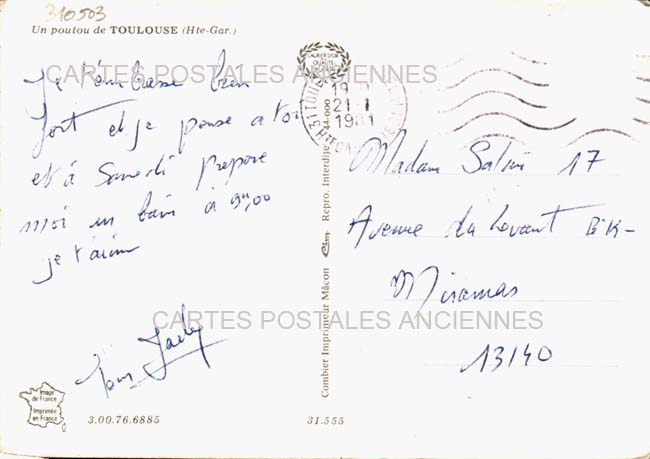 310503
Un poutou de TOULOUSE (Hte-Gar.)
CARTES POSTALES ANCIENNES
Je t'embrasse bien
fort et je pense a toi
et à Samedi prepare
moi un bain à 9H,00
je t'aime
19
21-1
1981
31 TOULOUSE
Hte GARONNE
Madam Salini 17
Avenue du Levant
Miramas
13140
CARTES POSTALES ANCIENNES
Combier Imprimeur Mâcon Cim Repro. Interdite
Image
de France
Imprimée
en France
3.00.76.6885
31.555